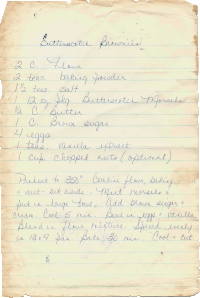 Butterscotch Brownies
2 C. Flour
2 teas baking powder
1½ teas salt
1 12 oz pkg Butterscotch Morsels
C. Butter
1 C. Brown sugar
4 eggs
1 teas. Vanilla extract
1 cup chopped nuts (optional)
Preheat to 350° Combine flour, baking
+ salt - set aside - Melt morsels +
put in large bowl. Add brown sugar +
cream. Cool 5 min. Beat in eggs + vanilla
Blend in flour mixture. Spread evenly
in pan. Bake 30 min. Cool + cut